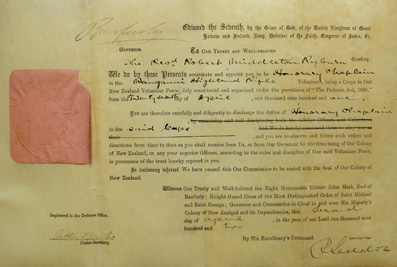 Ranfurly
Edward the Seventh, by the Grace of God, of the United Kingdom of Great
Britain and Ireland, King, Defender of the Faith, Emperor of India, &c.
GOVERNOR.
TO OUR TRUSTY AND WELL-BELOVED
The Revd Robert Middleton Ryburn Greeting
We do by these Presents constitute and appoint you to be Honorary Chaplain
Wanganui Highland Rifle Volunteers, being a Corps in Our
New Zealand Volunteer Force, duly constituted and organized under the provisions of "The Defence Act, 1886,"
from the day of April, one thousand nine hundred and one
You are therefore carefully and diligently to discharge the duties of Honorary Chaplain
in the said Corps
and you are to observe and follow such orders and
directions from time to time as you shall receive from Us, or from Our Governor for the time being of Our Colony
of New Zealand, or any your superior Officers, according to the rules and discipline of Our said Volunteer Force,
in pursuance of the trust hereby reposed in you.
In testimony whereof We have caused this Our Commission to be sealed with the Seal of Our Colony of
New Zealand.
WITNESS Our Trusty and Well-beloved the Right Honourable Uchter John Mark, Earl of
Ranfurly; Knight Grand Cross of the Most Distinguished Order of Saint Michael
and Saint George; Governor and Commander-in-Chief in and over His Majesty's
Colony of New Zealand and its Dependencies, this second
day of April, in the year of Our Lord one thousand nine
hundred and two
Registered in the Defence Office.
Under-Secretary.
By His Excellency's Command.